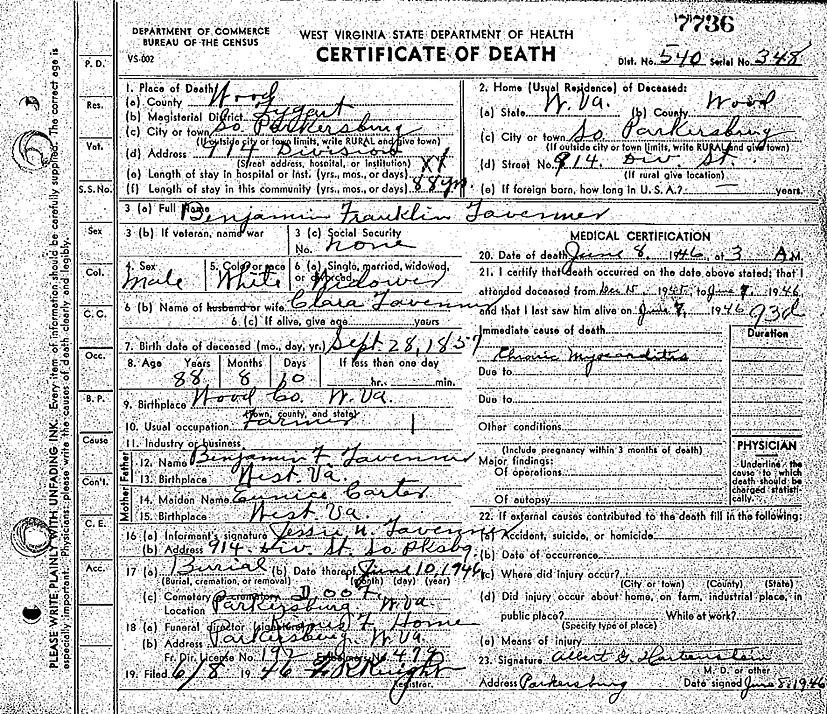 7736
DEPARTMENT OF COMMERCE
BUREAU OF THE CENSUS
VS-002
WEST VIRGINIA STATE DEPARTMENT OF HEALTH
CERTIFICATE OF DEATH
Dist. No. 540 Serial No. 348
PLEASE WRITE PLAINLY WITH UNFADING INK. Every item of information should be carefully supplied. The correct age is
especially important. Physicians: please write the causes of death clearly and legibly.
P. D.
Res.
Vet.
S.S. No.
Sex
Col.
C. C.
Occ.
B. P.
Cause
Con't.
C. E.
Acc.
1. Place of Death
(a) County Wood
(b) Magisterial District Tygart
(c) City or town So Parkersburg
(If outside city or town limits, write RURAL and give town)
(d) Address 914 Division
(Street address, hospital, or institution)
(e) Length of stay in hospital or Inst. (yrs., mos., or days) XX
(f) Length of stay in this community (yrs., mos., or days) 88 yr.
2. Home (Usual Residence) of Deceased:
(a) State W. Va. (b) County Wood
(c) City or town So Parkersburg
(If outside city or town limits, write RURAL and give town)
(d) Street No. 914 Div. St.
(If rural give location)
(e) If foreign born, how long in U. S. A.? — years.
3 (a) Full Name Benjamin Franklin Tavenner
3 (b) If veteran, name war
3 (c) Social Security
No. none
4. Sex
Male
5. Color or race
White
6 (a) Single, married, widowed,
or divorced
Widower
6 (b) Name of husband or wife Clara Tavenner
6 (c) If alive, give age years
7. Birth date of deceased (mo., day, yr.) Sept. 28, 1857
8. Age Years Months Days If less than one day
88 8 10 hr. min.
9. Birthplace Wood Co. W. Va.
(Town, county, and state)
10. Usual occupation Farmer
11. Industry or business
Father
12. Name Benjamin F Tavenner
13. Birthplace West Va.
Mother
14. Maiden Name Eunice Carter
15. Birthplace West Va.
16 (a) Informant's signature Jessie Tavenner
(b) Address 914 Div St. So Pksbg.
17 (a) Burial (b) Date thereof June 10, 1946
(Burial, cremation, or removal) (Month) (day) (year)
(c) Cemetery
Location Parkersburg W. Va.
18 (a) Funeral director (signature) Home
(b) Address Parkersburg W. Va.
Fr. Dir. License No. 192
19. Filed 6/8 1946
Registrar.
MEDICAL CERTIFICATION
20. Date of death June 8, 1946 at 3 A M.
21. I certify that death occurred on the date above stated; that I
attended deceased from Dec 15, 1945 to June 7, 1946
and that I last saw him alive on June 7, 1946 93d
Immediate cause of death
Duration
Chronic Myocarditis
Due to
Due to
Other conditions
(Include pregnancy within 3 months of death)
Major findings:
Of operations
Of autopsy
PHYSICIAN
Underline the
cause to which
death should be
charged statisti-
cally.
22. If external causes contributed to the death fill in the following:
(a) Accident, suicide, or homicide
(b) Date of occurrence
(c) Where did injury occur?
(City or town) (County) (State)
(d) Did injury occur about home, on farm, industrial place, in
public place? While at work?
(Specify type of place)
(e) Means of injury
23. Signature Albert G. Hartenstein
M. D. or other
Address Parkersburg Date signed June 8, 1946